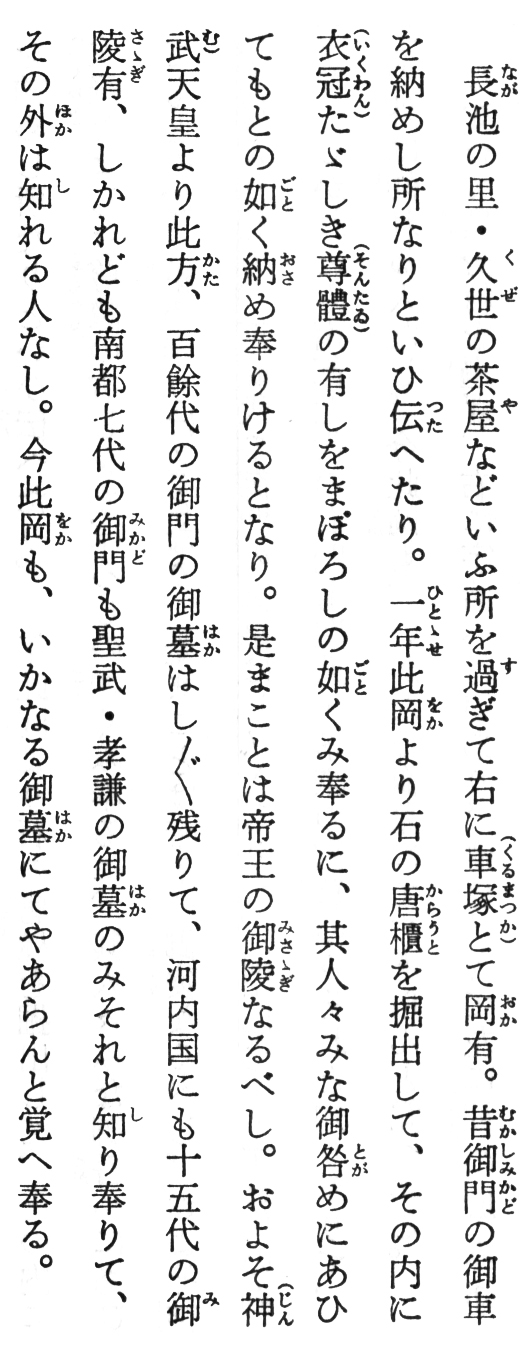 長池の里・久世の茶屋などいふ所を過ぎて右に車塚とて岡有。昔御門の御車
を納めし所なりといひ伝へたり。一年此岡より石の唐櫃を掘出して、その内に
衣冠たゞしき尊體の有しをまぼろしの如くみ奉るに、其人々みな御咎めにあひ
てもとの如く納め奉りけるとなり。是まことは帝王の御陵なるべし。およそ神
武天皇より此方、百餘代の御門の御墓はし〴〵残りて、河内国にも十五代の御
陵有、しかれども南都七代の御門も聖武・孝謙の御墓のみそれと知り奉りて、
その外は知れる人なし。今此岡も、いかなる御墓にてやあらんと覚へ奉る。